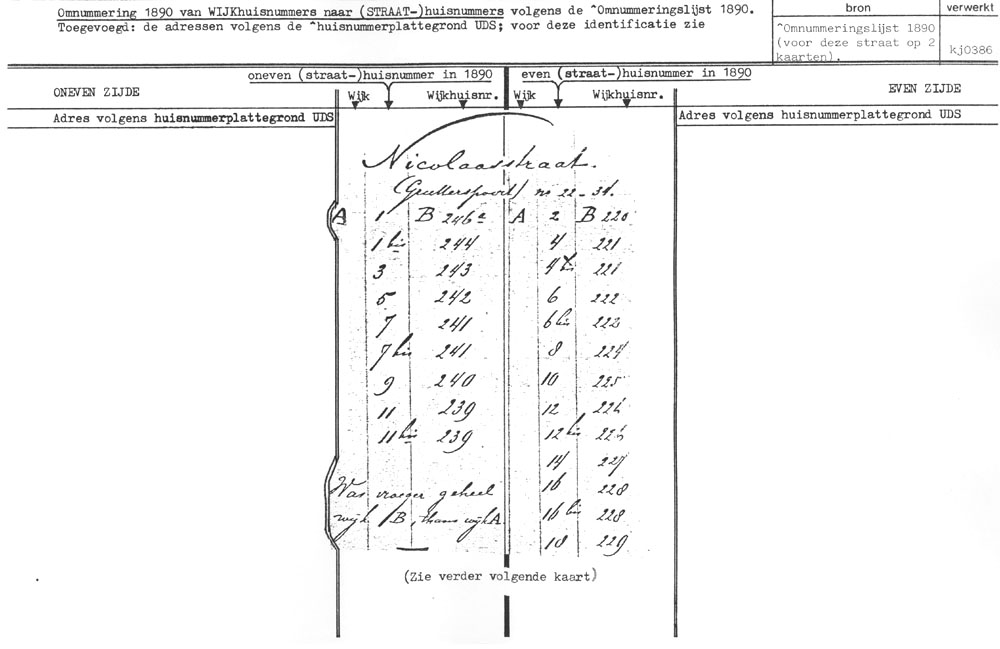 Omnummering 1890 van WIJKhuisnummers naar (STRAAT-)huisnummers volgens de ^Omnummeringslijst 1890.
Toegevoegd: de adressen volgens de ^huisnummerplattegrond UDS; voor deze identificatie zie
bron verwerkt
^Omnummeringslijst 1890
(voor deze straat op 2
kaarten).
kj0386
oneven (straat-)huisnummer in 1890 even (straat-)huisnummer in 1890
ONEVEN ZIJDE Wijk Wijkhuisnr. Wijk Wijkhuisnr. EVEN ZIJDE
Adres volgens huisnummerplattegrond UDS Adres volgens huisnummerplattegrond UDS
Nicolaasstraat.
nr 22-31.
A 1 B 246a A 2 B 220
1 bis 244 4 221
3 243 4 bis 221
5 242 6 222
7 241 6 bis 222
7 bis 241 8 224
9 240 10 225
11 239 12 226
11 bis 239 12 bis 226
14 227
16 228
Was vroeger geheel
wijk B, thans wijk A
16 bis 228
18 229
(Zie verder volgende kaart)